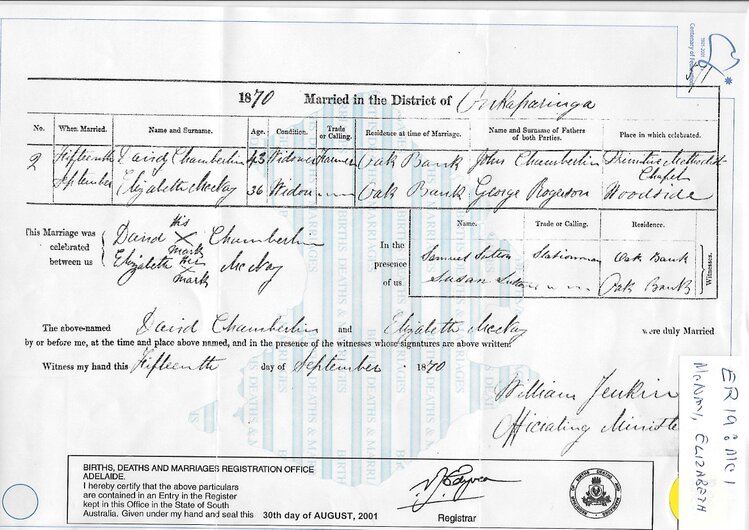 1901-2001
Centenary of Federation
1870 Married in the District of Onkaparinga
No. When Married. Name and Surname. Age. Condition. Trade or Calling. Residence at time of Marriage. Name and Surname of Fathers of both Parties. Place in which celebrated.
2 Fifteenth David Chamberlin 43 Widower Farmer Oak Bank John Chamberlin Primitive Methodist Chapel
September Elizabeth McNay 36 Widow Oak Bank George Rogerson Woodside
This Marriage was celebrated between us
David His X mark Chamberlin
Elizabeth Her X mark McNay
In the presence of us
Name. Trade or Calling. Residence.
Samuel Sutton Oak Bank
Susan Sutton Oak Bank
Witnesses.
The above-named David Chamberlin and Elizabeth McNay were duly Married
by or before me, at the time and place above named, and in the presence of the witnesses whose signatures are above written.
Witness my hand this Fifteenth day of September 1870
William Jenkin
Officiating Minister
BIRTHS, DEATHS AND MARRIAGES REGISTRATION OFFICE
ADELAIDE.
I hereby certify that the above particulars
are contained in an Entry in the Register
kept in this Office in the State of South
Australia. Given under my hand and seal this 30th day of AUGUST, 2001
Registrar
ER 19 : MC 1
ELIZABETH